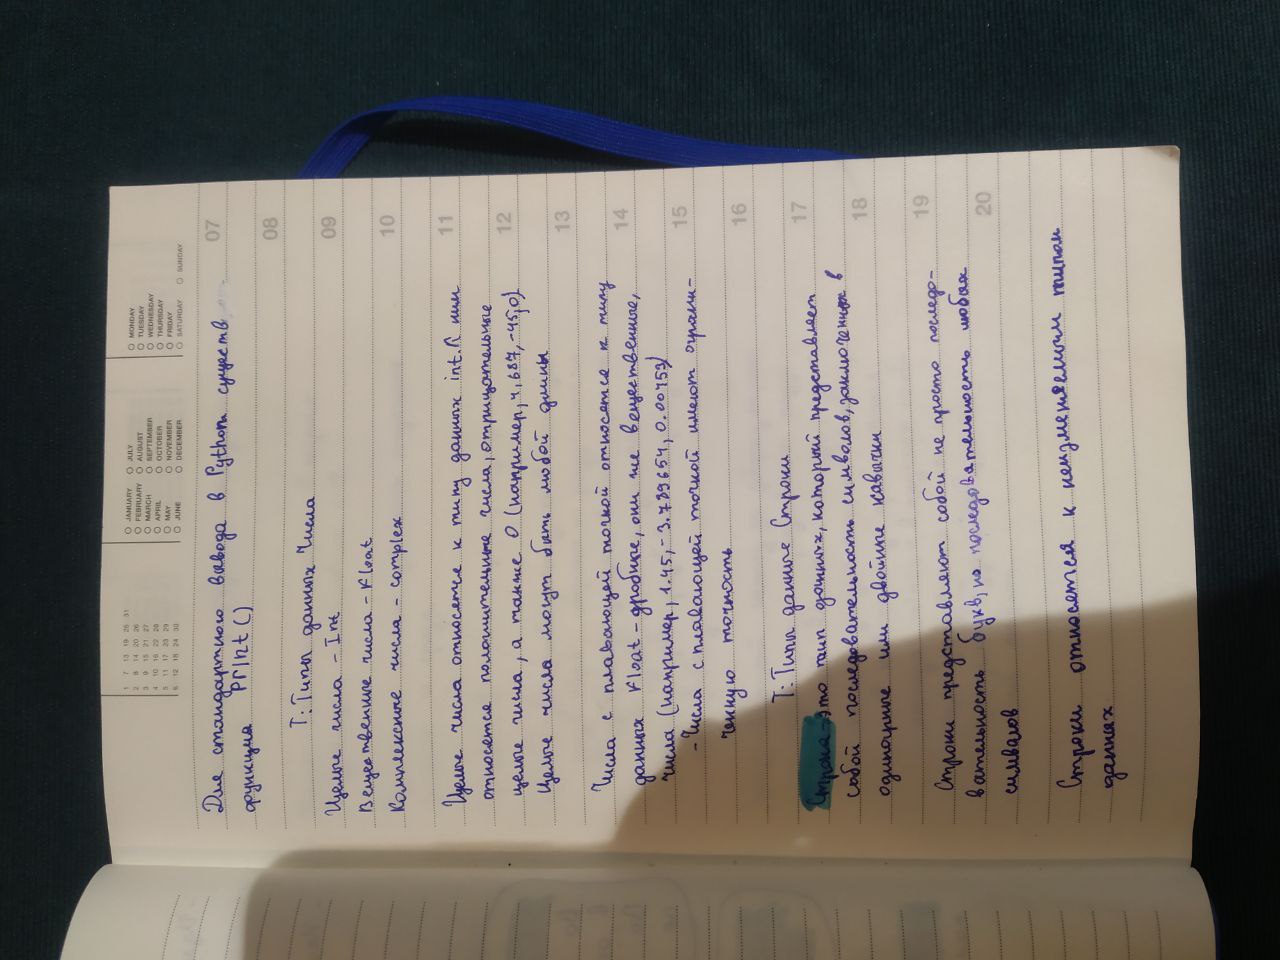 1 7 13 19 25 31
2 8 14 20 26
3 9 15 21 27
4 10 16 22 28
5 11 17 23 29
6 12 18 24 30
JANUARY JULY
FEBRUARY AUGUST
MARCH SEPTEMBER
APRIL OCTOBER
MAY NOVEMBER
JUNE DECEMBER
MONDAY
TUESDAY
WEDNESDAY
THURSDAY
FRIDAY
SATURDAY SUNDAY
Для стандартного вывода в Python существ 07
функция Print()
08
Т: Типы данных Числа
Целые числа - Int 09
Вещественные числа - Float
Комплексные числа - complex 10
Целые числа относятся к типу данных int. К ним 11
относятся положительные числа, отрицательные
целые числа, а также 0 (например, 4, 687, -45, 0) 12
Целые числа могут быть любой длины
13
Числа с плавающей точкой относятся к типу
данных Float - дробные, они же вещественные, 14
числа (например, 1.45, -3.789654, 0.00453)
- Числа с плавающей точкой имеют ограни- 15
ченную точность
16
Т: Типы данные Строки
Строка - это тип данных, который представляет 17
собой последовательность символов, заключенных в
одинарные или двойные кавычки 18
Строки представляют собой не просто последо- 19
вательность букв, но последовательность любых
символов 20
Строки относятся к неизменяемым типам
данных